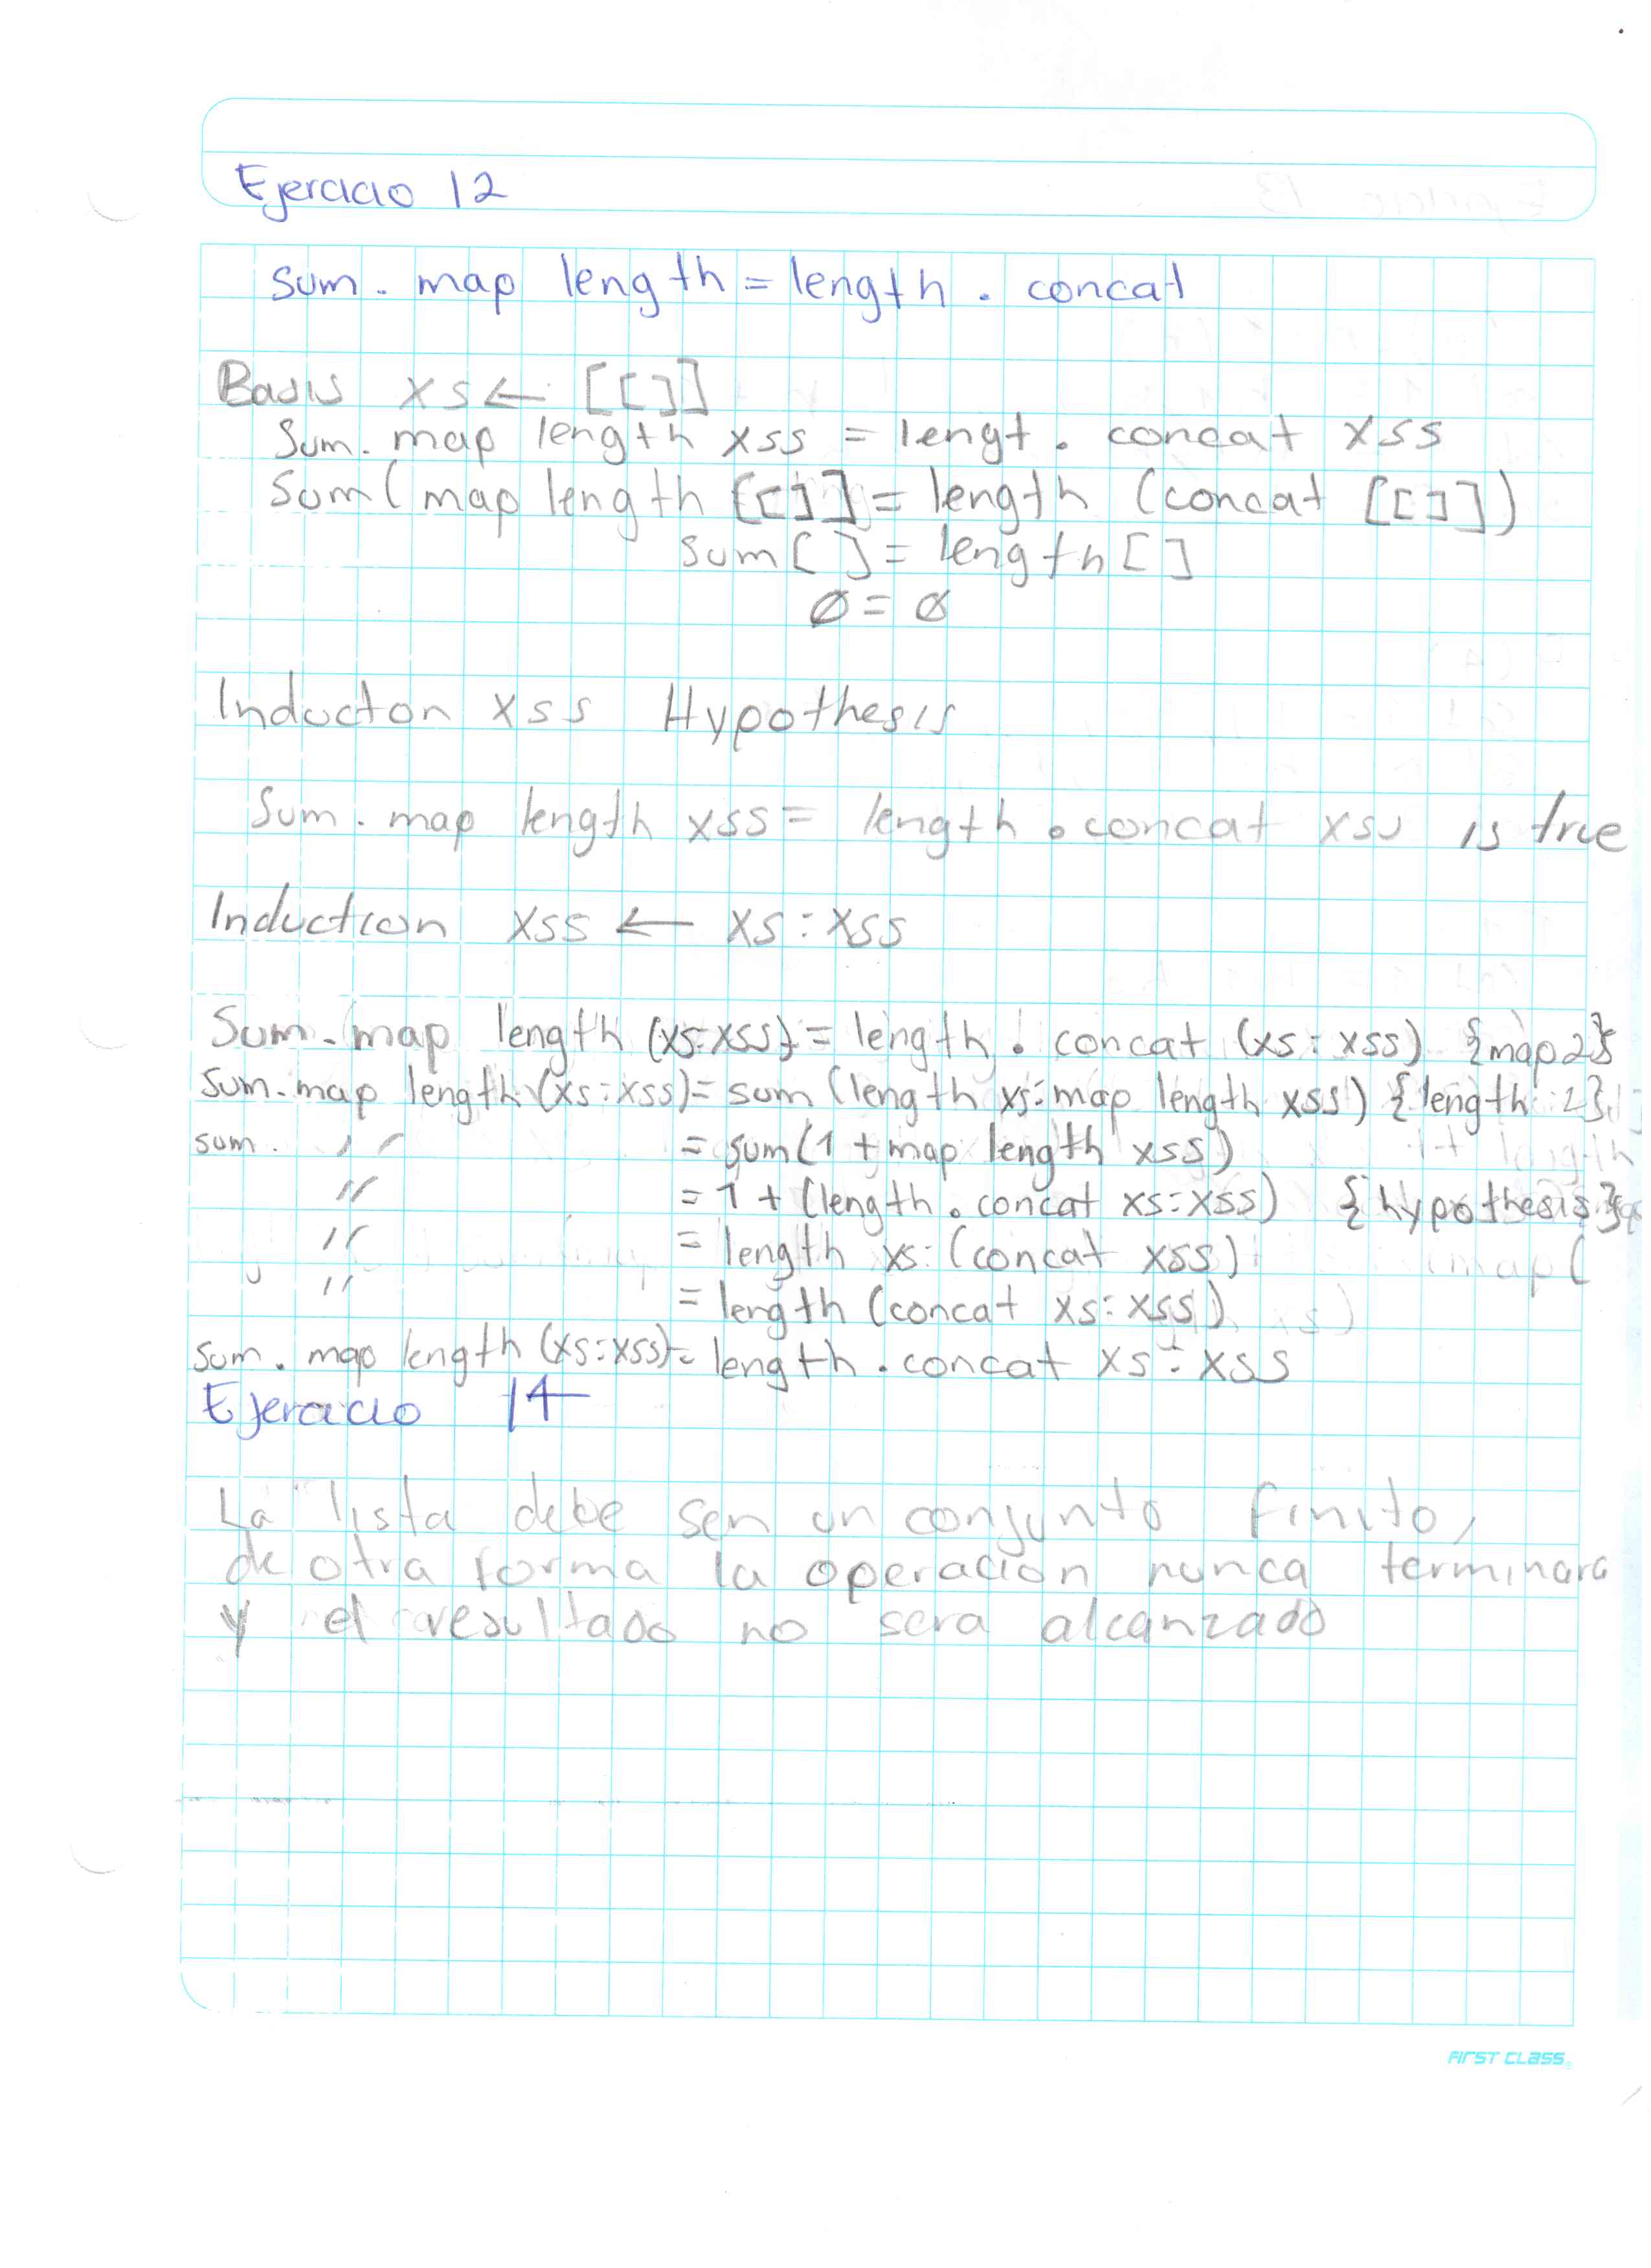 Ejercicio 12
sum. map length = length . concat
Basis xs ← [[]]
Sum. map length xss = lengt . concat xss
Sum (map length [[]] = length (concat [[]])
sum [ ] = length [ ]
0 = 0
Inducton xss Hypothesis
Sum . map length xss = length . concat xss is true
Induction xss ← xs : xss
Sum . map length (xs:xss) = length . concat (xs : xss) {map 2}
sum. map length (xs:xss) = sum (length xs: map length xss) {length 2}
sum. " = sum (1 + map length xss)
" = 1 + (length . concat xs:xss) {hypothesis}
" = length xs: (concat xss)
" = length (concat xs: xss)
sum . map length (xs:xss) = length . concat xs : xss
Ejercicio 14
La lista debe ser un conjunto finito,
de otra forma la operacion nunca terminara
y el resultado no sera alcanzado
First Class